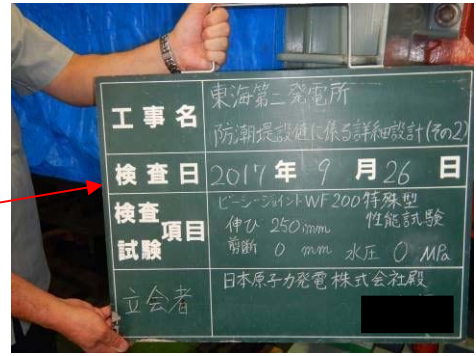 工事名
東海第二発電所
防潮堤設置に係る詳細設計(その2)
検査日
2017年9月26日
検査
試験
項目
ビーシージョイントWF200特殊型
性能試験
伸び 250mm
剪断 0 mm 水圧 0 MPa
立会者
日本原子力発電株式会社殿